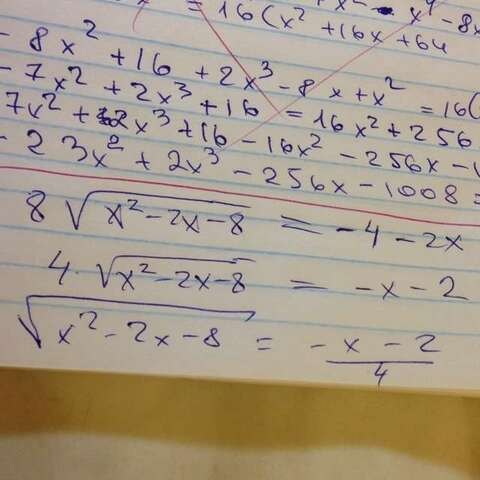 = 16(x² + 16x + 64
- 8x² + 16 + 2x³ - 8x + x² = 16(
- 7x² + 2x³ + 16 = 16x² + 256
7x² + 2x³ + 16 - 16x² - 256x - 1
- 23x² + 2x³ - 256x - 1008 =
8 √(x² - 2x - 8) = -4 - 2x
4 · √(x² - 2x - 8) = -x - 2
√(x² - 2x - 8) = (-x - 2)/4